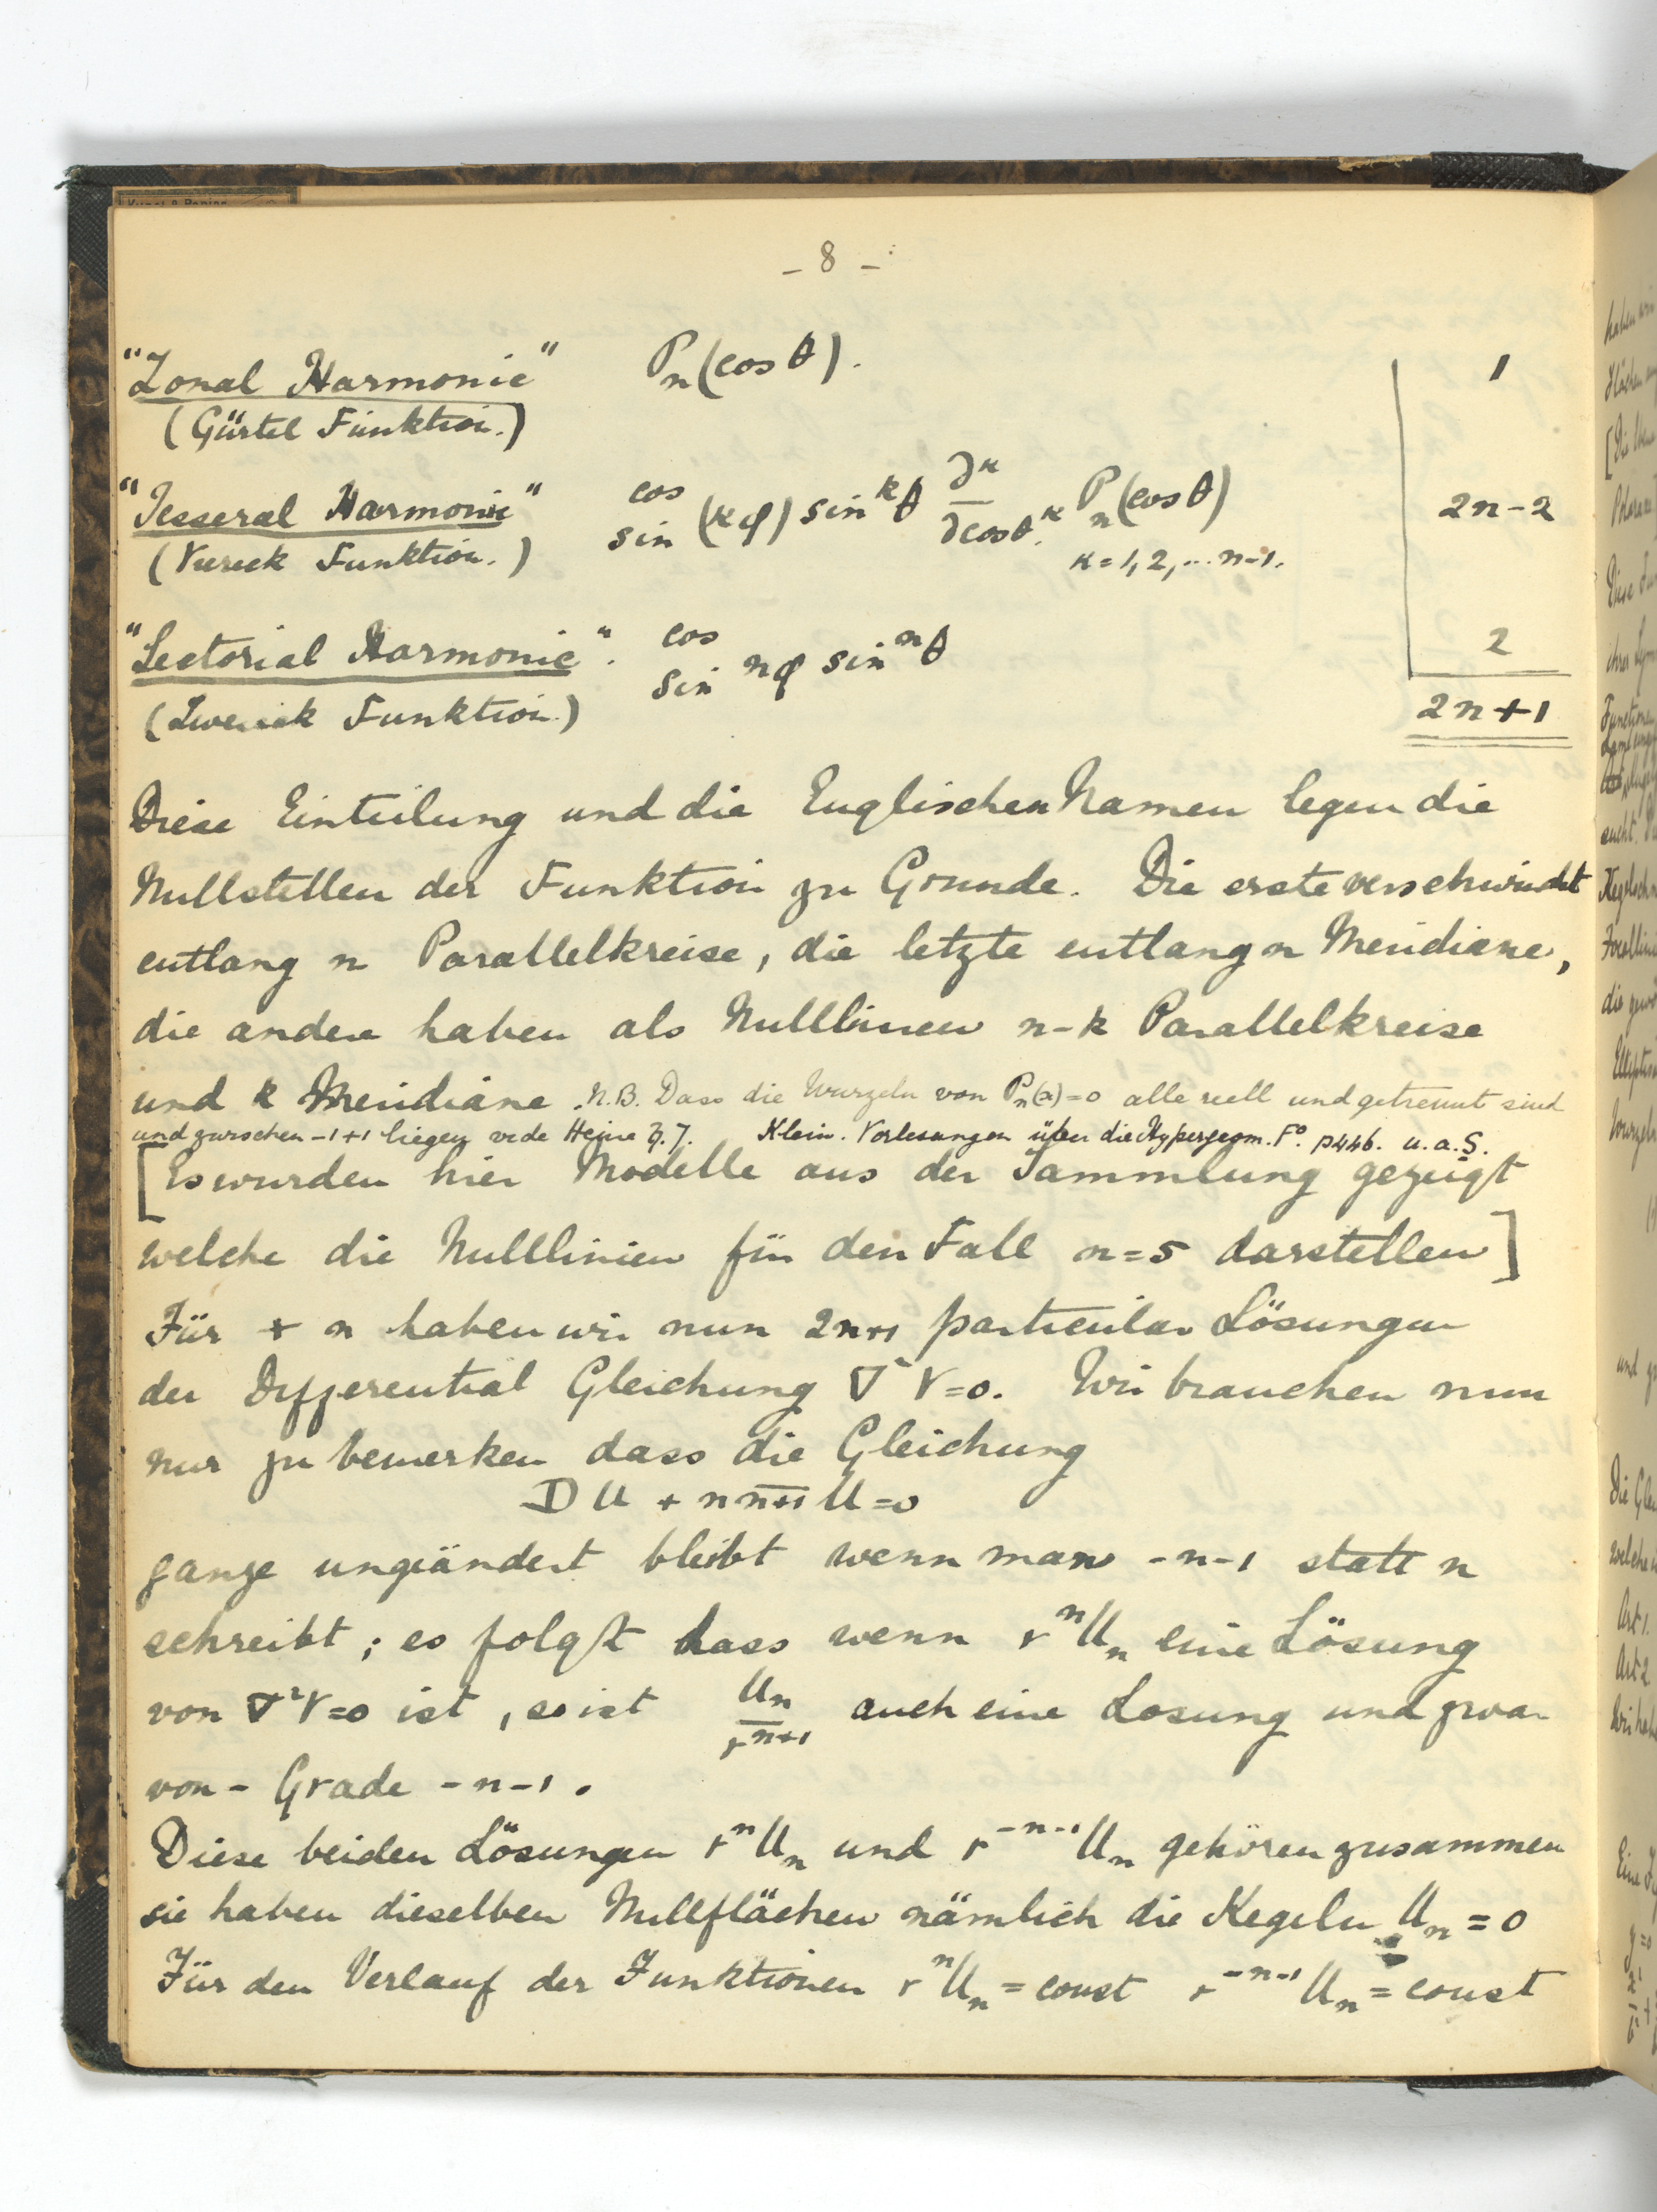 - 8 -
"Zonal Harmonic" Pₙ(cos θ). 1
(Gürtel Funktion.)
"Tesseral Harmonic" cos sin (κφ) sinᵏθ ∂ᵏ/∂cosθᵏ Pₙ(cos θ) 2n-2
(Viereck Funktion.) κ = 1, 2, ... n-1.
"Sectorial Harmonic". cos sin nφ sinⁿθ 2
(Zweieck Funktion.) 2n+1
Diese Einteilung und die Englischen Namen legen die
Nullstellen der Funktion zu Grunde. Die erste verschwindet
entlang n Parallelkreise, die letzte entlang n Meridiane,
die andere haben als Nulllinien n-k Parallelkreise
und k Meridiane. N.B. Dass die Wurzeln von Pₙ(x)=0 alle reell und getrennt sind
und zwischen -1+1 liegen vide Heine Klein. Vorlesungen über die Hypergeom. Fº. p446. u.a.S.
[Es wurden hier Modelle aus der Sammlung gezeigt
welche die Nulllinien für den Fall n=5 darstellen]
Für + n haben wir nun 2n+1 particular Lösungen
der Differential Gleichung ∇²V=0. Wir brauchen nun
nur zu bemerken dass die Gleichung
DU + n n+1 U = 0
ganze ungeändert bleibt wenn man -n-1 statt n
schreibt; es folgt dass wenn rⁿUₙ eine Lösung
von ∇²V=0 ist, so ist Uₙ/rⁿ⁺¹ auch eine Losung und zwar
von - Grade -n-1.
Diese beiden Lösungen rⁿUₙ und r⁻ⁿ⁻¹Uₙ gehören zusammen
sie haben dieselben Nullflächen nämlich die Kegeln Uₙ = 0
Für den Verlauf der Funktionen rⁿUₙ = const r⁻ⁿ⁻¹Uₙ = const